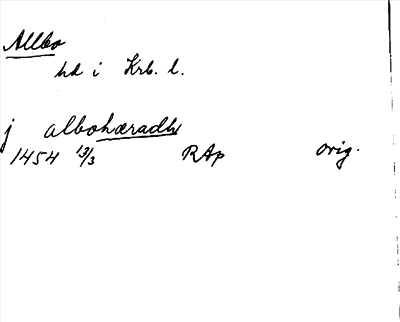 Allbo
hd i Krb. l.
j albohæradhe
1454 13/3 RAp orig.